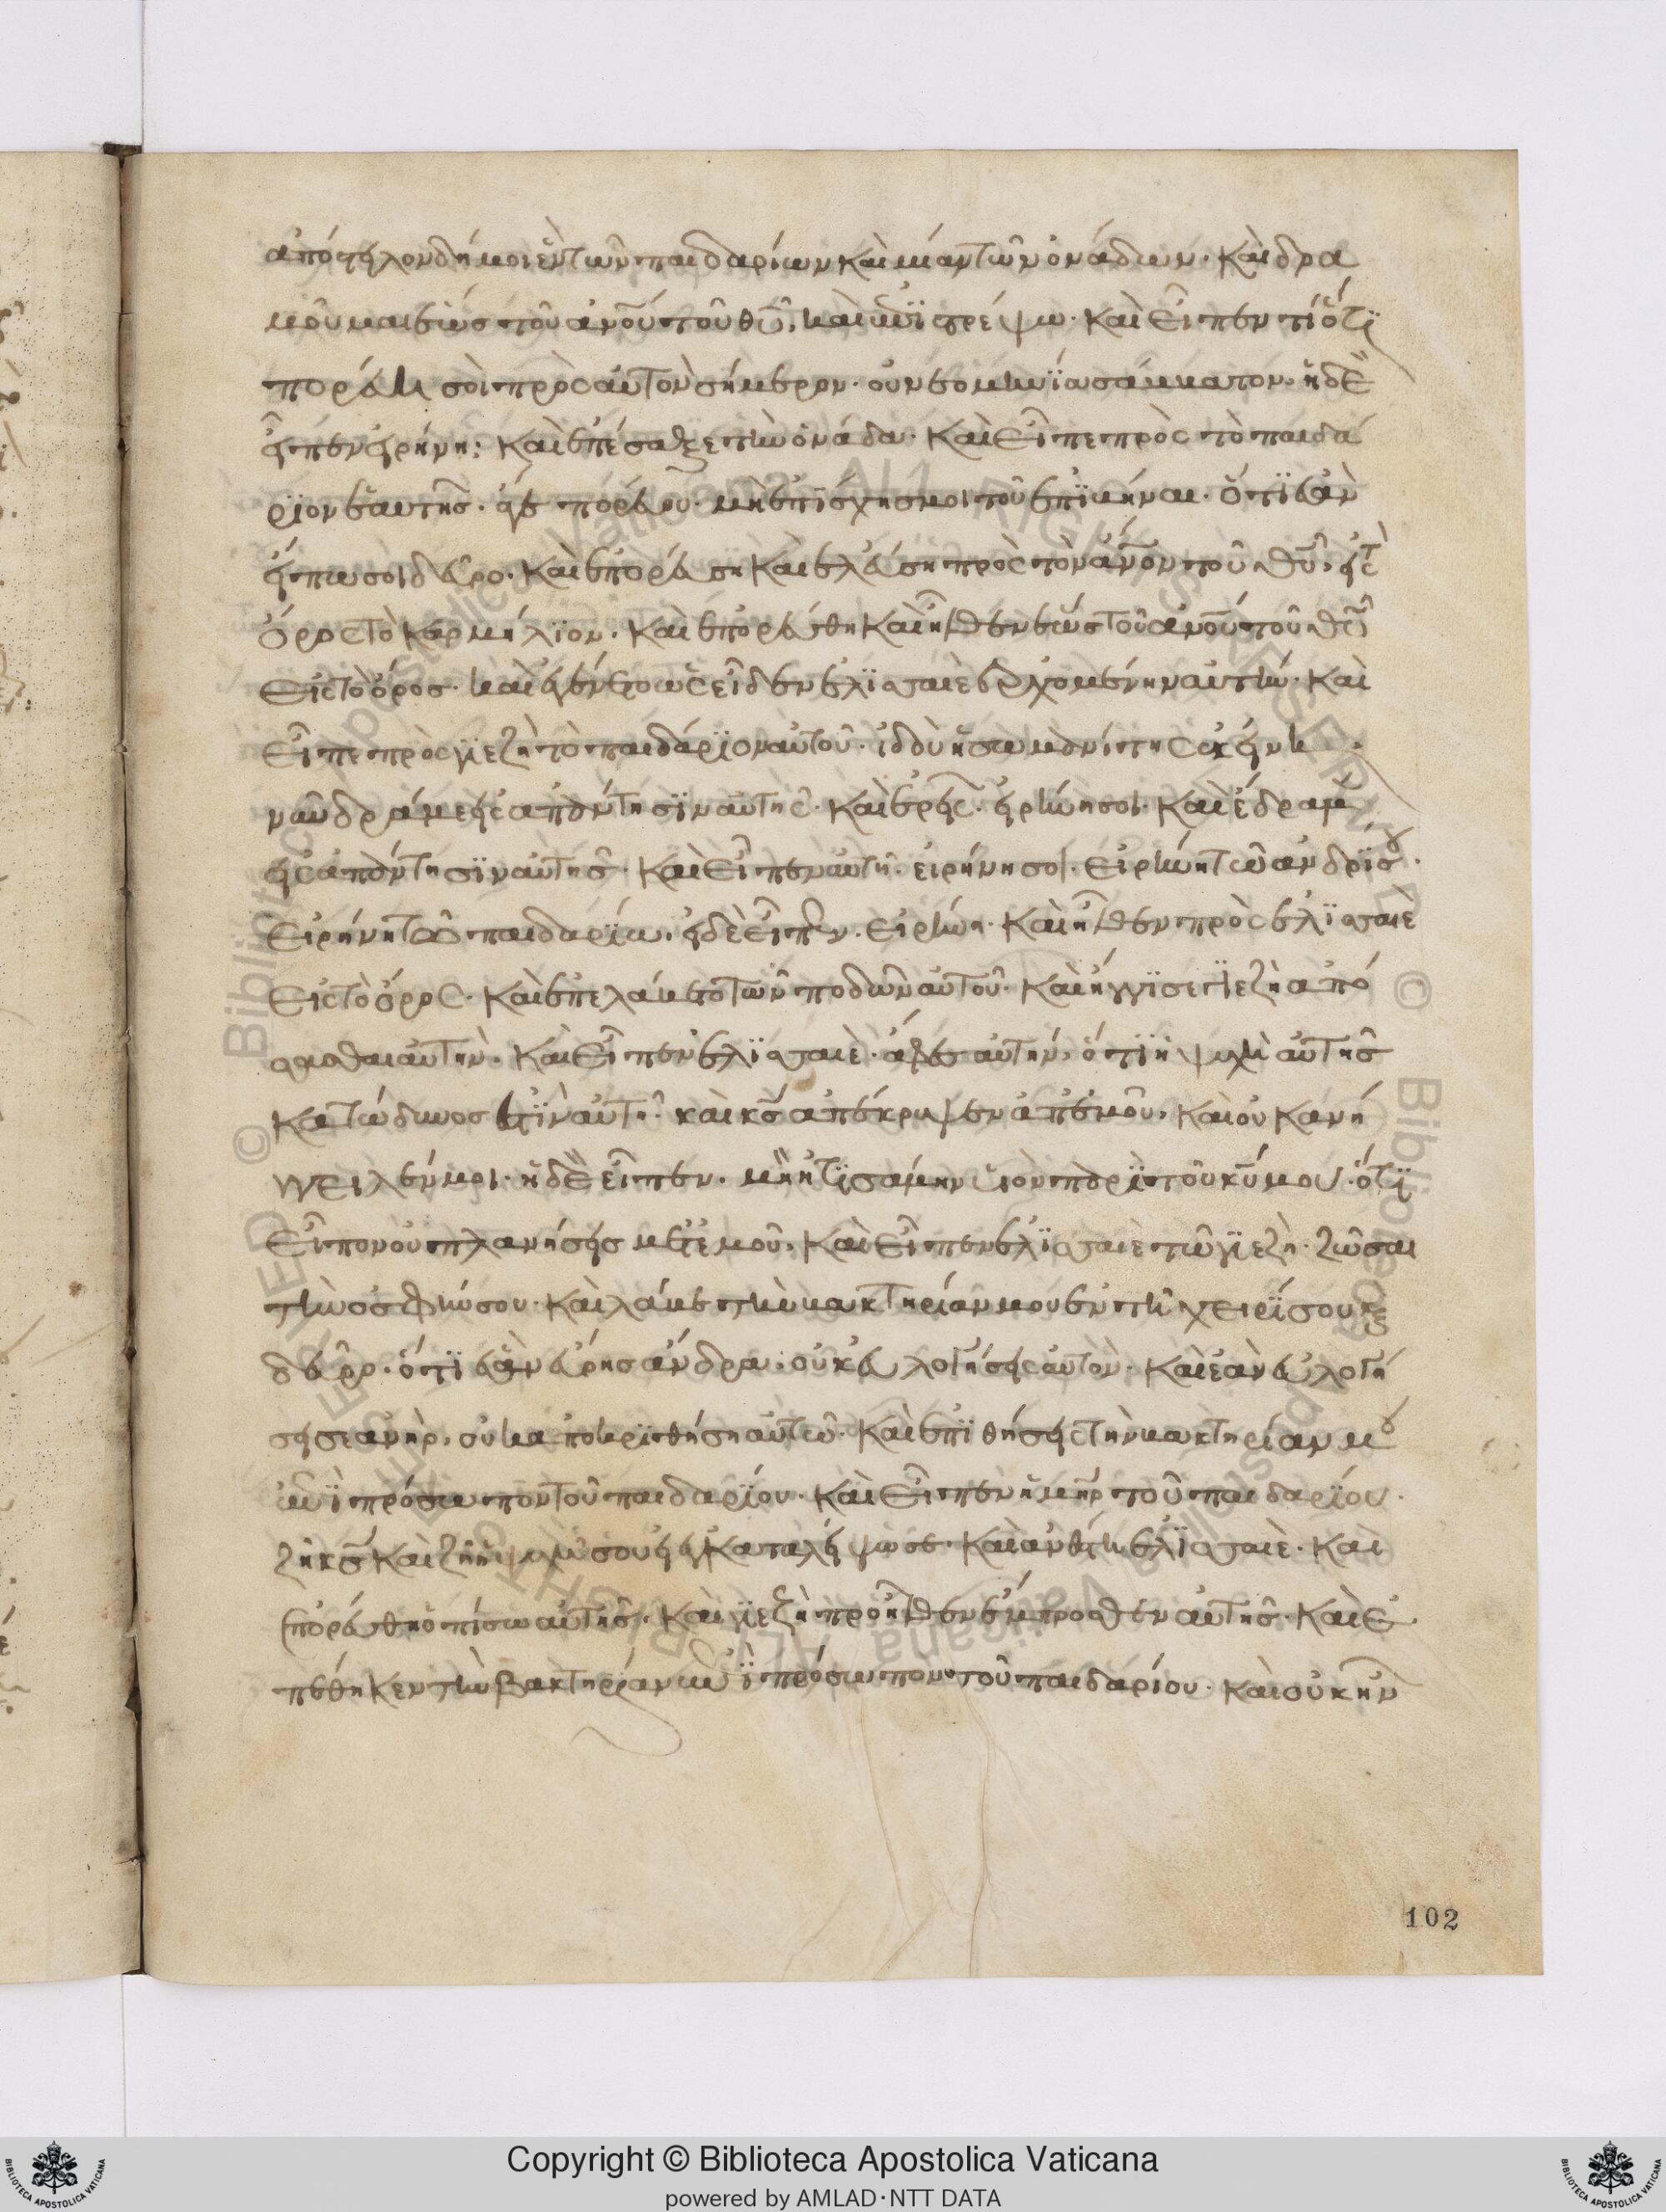 ἀπόστειλον δή μοι ἓν τῶν παιδαρίων καὶ μίαν τῶν ὀνάδων. καὶ δρα
μοῦμαι ἕως τοῦ ἀνοῦ τοῦ θῦ, καὶ ἐπιστρέψω. καὶ εἶπεν τί ὅτι
πορεύῃ σὺ πρὸς αὐτὸν σήμερον. οὐ νεομηνία οὐ σάββατον. ἡ δὲ
εἶπεν εἰρήνη: καὶ ἐπέσαξε τὴν ὀνάδα. καὶ εἶπε πρὸς τὸ παιδά
ριον ἑαυτῆς. ἄγε πορεύου. μὴ ἐπίσχῃς μοι τοῦ ἐπιβῆναι. ὅτι ἐὰν
εἴπω σοι δεῦρο. καὶ πορεύσῃ καὶ ἐλεύσῃ πρὸς τὸν ἄνον τοῦ θῦ, εἰς τὸ
ὄρος τὸ καρμήλιον. καὶ ἐπορεύθη καὶ ἦλθεν ἕως τοῦ ἀνοῦ τοῦ θῦ
εἰς τὸ ὄρος. καὶ ἐγένετο ὡς εἶδεν ἐλισσαιὲ ἐρχομένην αὐτήν. καὶ
εἶπε πρὸς γιεζῆ τὸ παιδάριον αὐτοῦ. ἰδοὺ ἡ σωμανίτης ἐκείνη.
νῦν δράμε εἰς ἀπάντησιν αὐτῆς. καὶ ἐρεῖς. εἰρήνη σοι. καὶ ἔδραμεν
εἰς ἀπάντησιν αὐτῆς. καὶ εἶπεν αὐτῇ. εἰρήνη σοι. εἰρήνη τῷ ἀνδρί σου.
εἰρήνη τῷ παιδαρίῳ. ἡ δὲ εἶπεν. εἰρήνη. καὶ ἦλθεν πρὸς ἐλισσαιὲ
εἰς τὸ ὄρος. καὶ ἐπελάβετο τῶν ποδῶν αὐτοῦ. καὶ ἤγγισε γιεζῆ ἀπώ
σασθαι αὐτήν. καὶ εἶπεν ἐλισσαιὲ. ἄφες αὐτήν, ὅτι ἡ ψυχὴ αὐτῆς
κατώδυνος ἐπ' αὐτῇ. καὶ κς ἀπέκρυψεν ἀπ' ἐμοῦ, καὶ οὐκ ἀνή
γγειλέν μοι. ἡ δὲ εἶπεν. μὴ ᾐτισάμην υἱὸν παρὰ τοῦ κυ μου. ὅτι
εἶπον οὐ πλανήσεις μετ' ἐμοῦ. καὶ εἶπεν ἐλισσαιὲ τῷ γιεζῆ. ζῶσαι
τὴν ὀσφύν σου. καὶ λάβε τὴν βακτηρίαν μου ἐν τῇ χειρί σου καὶ
δεῦρο. ὅτι ἐὰν εὕρῃς ἄνδρα, οὐκ εὐλογήσεις αὐτόν. καὶ ἐὰν εὐλογή
σει σε ἀνήρ, οὐκ ἀποκριθήσῃ αὐτῷ. καὶ ἐπιθήσεις τὴν βακτηρίαν μου
ἐπὶ πρόσωπον τοῦ παιδαρίου. καὶ εἶπεν ἡ μηρ τοῦ παιδαρίου.
ζῇ κς καὶ ζῇ ἡ ψυχή σου εἰ ἐγκαταλείψω σε. καὶ ἀνέστη ἐλισσαιὲ. καὶ
ἐπορεύθη ὀπίσω αὐτῆς. καὶ γιεζῆ προῆλθεν ἔμπροσθεν αὐτῆς. καὶ ἐ
πέθηκεν τὴν βακτηρίαν ἐπὶ πρόσωπον τοῦ παιδαρίου. καὶ οὐκ ἦν
102
Copyright © Biblioteca Apostolica Vaticana
powered by AMLAD·NTT DATA